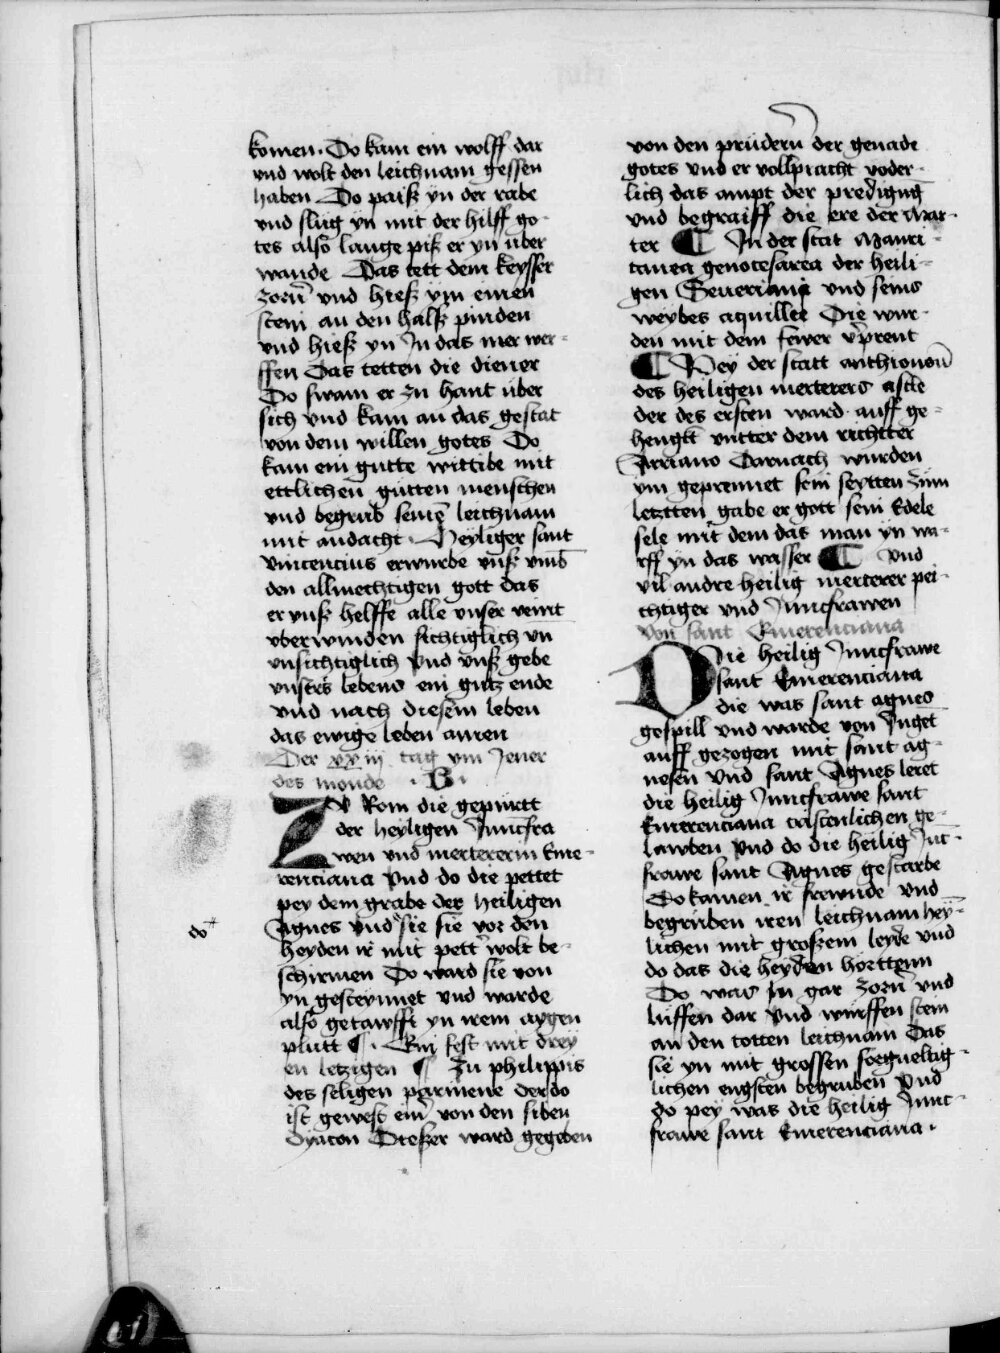 komen · Do kam ein wolff dar
vnd wolt den leichnam gessen
haben Do paiß yn der rabe
vnd slug yn mit der hilff go-
tes also lange piß er yn uber
wande Das tett dem keysser
zorn vnd hieß ym einen
stein an den halß pinden
vnd hieß yn Jn das mer wer-
ffen Das tetten die diener
Do swam er zu hant uber
sich vnd kam an das gestat
von dem willen gotes Do
kam ein gutte wittibe mit
ettlichen gutten menschen
vnd begrub seinē leichnam
mit andacht · Heyliger sant
vincencius erwurbe vnß vmb
den allmechtigen gott das
er vnß helffe alle vnser veint
vberwinden sichtiglich vn̄
vnsichtiglich Vnd vnß gebe
vnsers lebens ein gutz ende
vnd nach diesem leben
das ewige leben amen
Der xxiij tag ym Jener
des monde · B ·
ZV Rom die gepurtt
der heyligen Junckfra
wen vnd mertererin Eme-
renciana Vnd do die pettet
pey dem grabe der heiligen
do+
Agnes vnd sie sie vor den
heyden ir mit pett wolt be-
schirmen Do ward sie von
yn gesteynnet vnd warde
also getawfft yn irem aygen
plutt ¶ · Ein fest mit drey
en letzigen ¶ Zu philippis
des seligen parmene der do
ist gewest ein von den siben
dyacon Dieser ward gegeben
von den prüdern der genade
gotes vnd er vollpracht voder-
lich das ampt der predigūg
vnd begraiff die ere der Mar-
ter ¶ Jn der stat Mauri-
tanea genocesarea der heili-
gen Seueriani vnd seins
weybes aquillee Die wur-
den mit dem fewer v̓prent
¶ Pey der statt anthionon̄
des heiligen merterers astle
der des ersten ward auff ge-
hengkt vntter dem richtter
Arriano Darnach wurden
ym geprennet sein seytten Zum
letztten gabe er gott sein Edele
sele mit dem das man yn wa-
rff yn das wasser ¶ Vnd
vil andre heilig merterer pei-
chtiger vnd Junckfrawen
Von sant Emerenciana
Die heilig Junckfrawe
sant Emerenciana
die was sant agnes
gespill vnd warde von Juget
auff gezogen mit sant ag-
nesen Vnd sant Agnes leret
die heilig Junckfrawe sant
Emerenciana cristenlichen ge-
lawben Vnd do die heilig Junc-
frawe sant Agnes gestarbe
Do kamen ir frewnde vnd
begruben iren leichnam hey-
lichen mit großem leyde vnd
do das die heyden hortten
Do was In gar zorn vnd
luffen dar Vnd wurffen stein
an den totten leichnam Das
sie yn mit grossen sorgueltig-
lichen engsten begruben Vnd
do pey was die heilig Junc-
frawe sant Emerenciana ·